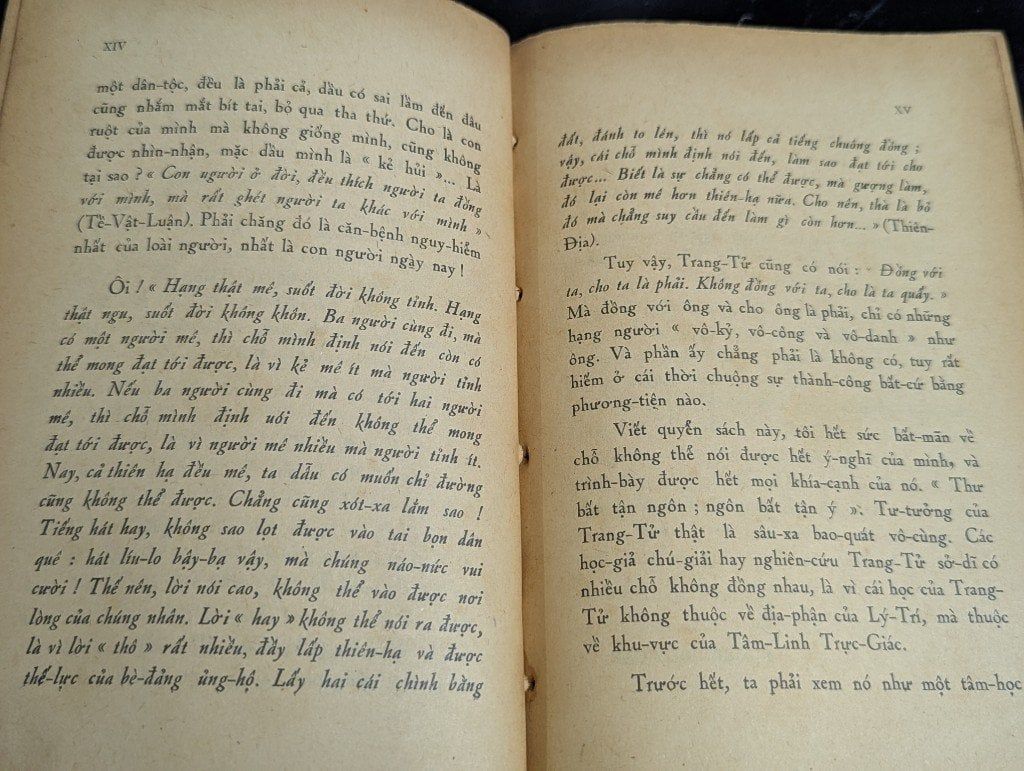 XIV
một dân-tộc, đều là phải cả, dầu có sai lầm đến đâu
cũng nhắm mắt bít tai, bỏ qua tha thứ. Cho là con
ruột của mình mà không giống mình, cũng không
được nhìn-nhận, mặc dầu mình là « kẻ hủi »... Là
tại sao ? « Con người ở đời, đều thích người ta đồng
với mình, mà rất ghét người ta khác với mình »
(Tề-Vật-Luận). Phải chăng đó là căn-bệnh nguy-hiểm
nhất của loài người, nhất là con người ngày nay !
Ôi ! « Hạng thát mê, suốt đời không tỉnh. Hạng
thật ngu, suốt đời không khôn. Ba người cùng đi, mà
có một người mê, thì chỗ mình định nói đến còn có
thể mong đạt tới được, là vì kẻ mê ít mà người tỉnh
nhiều. Nếu ba người cùng đi mà có tới hai người
mê, thì chỗ mình định uói đến không thể mong
đạt tới được, là vì người mê nhiều mà người tỉnh ít.
Nay, cả thiên hạ đều mê, ta dẫu có muốn chỉ đường
cũng không thể được. Chẳng cũng xót-xa lắm sao !
Tiếng hát hay, không sao lọt được vào tai bọn dân
quê : hát líu-lo bây-bạ vậy, mà chúng náo-nức vui
cười ! Thế nên, lời nói cao, không thể vào được nơi
lòng của chúng nhân. Lời « hay » không thể nói ra được,
là vì lời « thô » rất nhiều, đầy lấp thiên-hạ và được
thế-lực của bè-đảng ủng-hộ. Lấy hai cái chình bằng
XV
đất, đánh to lên, thì nó lấp cả tiếng chuông đồng ;
vậy, cái chỗ mình định nói đến, làm sao đạt tới cho
được... Biết là sự chẳng có thể được, mà gượng làm,
đó lại còn mê hơn thiên-hạ nữa. Cho nên, thà là bỏ
đó mà chẳng suy cầu đến làm gì còn hơn... » (Thiên-
Địa).
Tuy vậy, Trang-Tử cũng có nói : « Đồng với
ta, cho ta là phải. Không đồng với ta, cho là ta quấy. »
Mà đồng với ông và cho ông là phải, chỉ có những
hạng người « vô-kỷ, vô-công và vô-danh » như
ông. Và phần ấy chẳng phải là không có, tuy rất
hiếm ở cái thời chuộng sự thành-công bất-cứ bằng
phương-tiện nào.
Viết quyển sách này, tôi hết sức bất-mãn về
chỗ không thể nói được hết ý-nghĩ của mình, và
trình-bày được hết mọi khía-cạnh của nó. « Thư
bất tận ngôn ; ngôn bất tận ý ». Tư-tưởng của
Trang-Tử thật là sâu-xa bao-quát vô-cùng. Các
học-giả chú-giải hay nghiên-cứu Trang-Tử sở-dĩ có
nhiều chỗ không đồng nhau, là vì cái học của Trang-
Tử không thuộc về địa-phận của Lý-Trí, mà thuộc
về khu-vực của Tâm-Linh Trực-Giác.
Trước hết, ta phải xem nó như một tâm-học